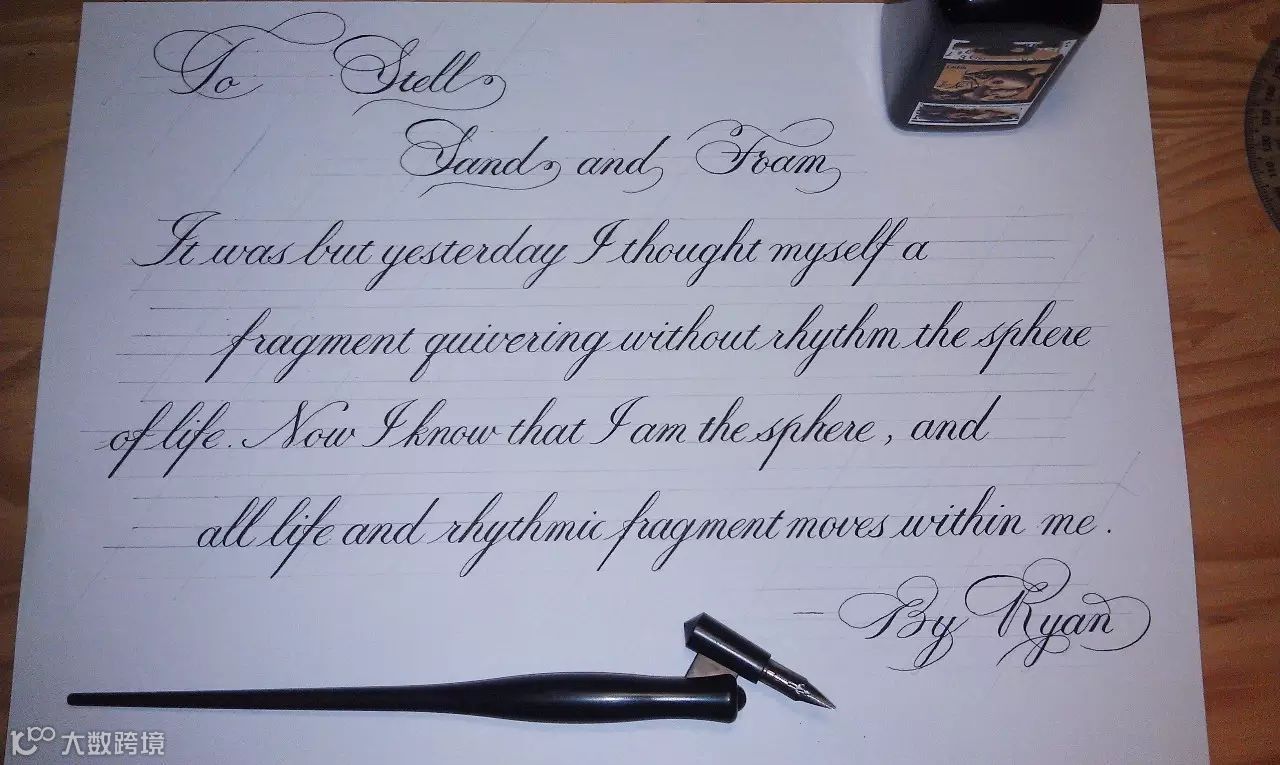 To Stell
Sand and Foam
It was but yesterday I thought myself a
fragment quivering without rhythm the sphere
of life. Now I know that I am the sphere, and
all life and rhythmic fragment moves within me.
- By Ryan
大数跨境